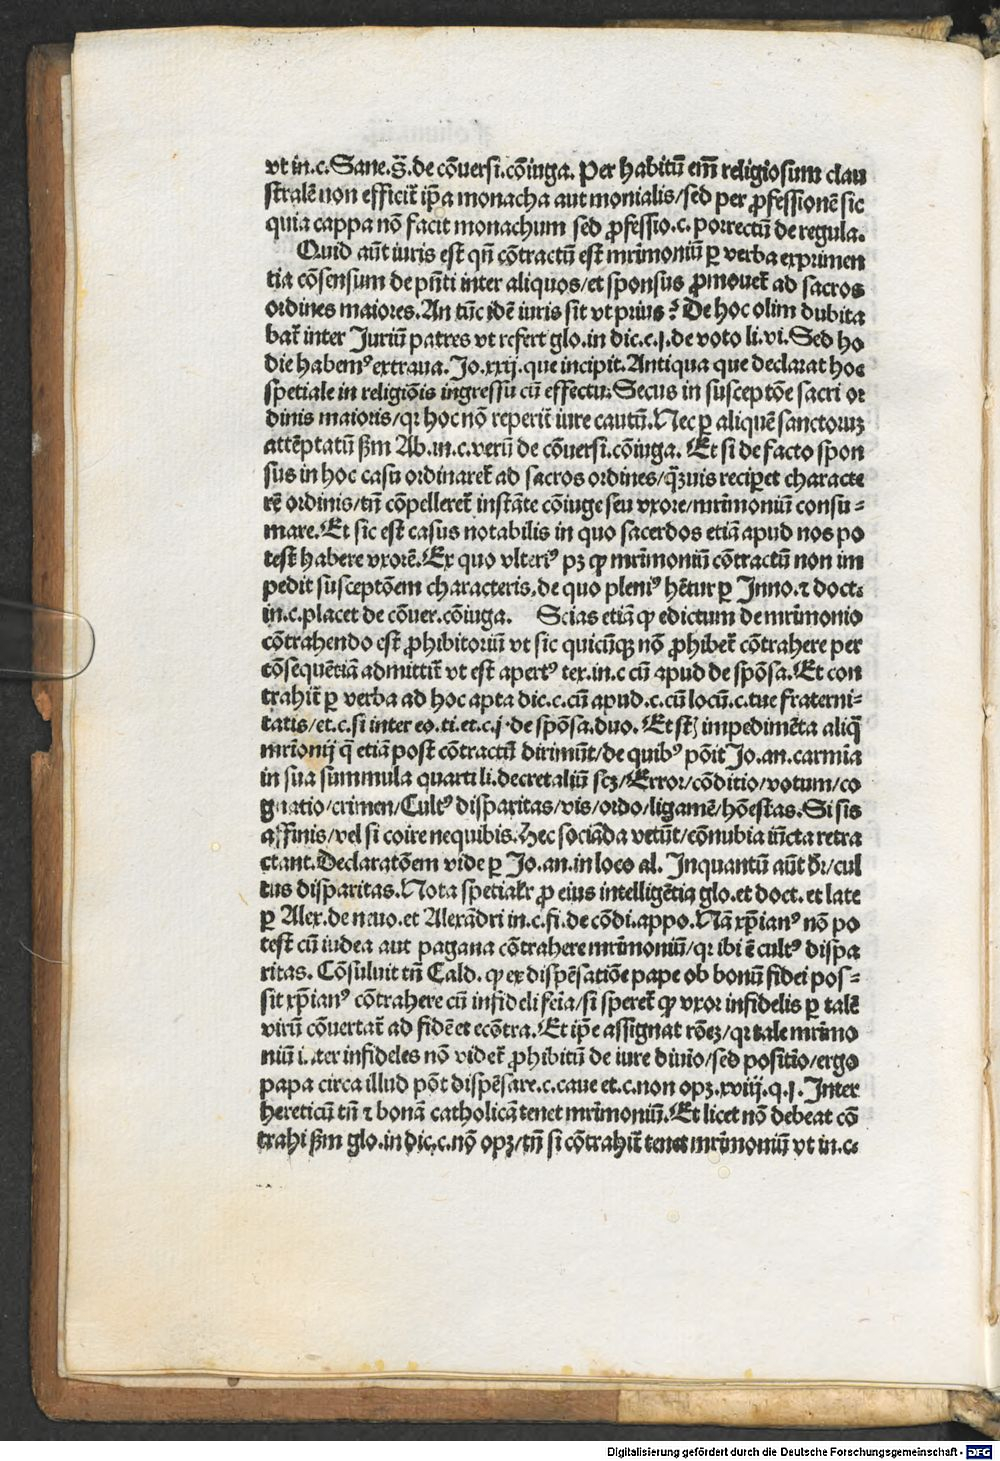 vt in.c.Sane.§̄.de cōuersi.cōiuga. Per habitū em̄ religiosum clau
stralē non efficit᷑ ip̄a monacha aut monialis/sed per ꝓfessionē sic
quia cappa nō facit monachum sed ꝓfessio.c. porrectū de regula.
Quid aūt iuris est qn̄ cōtractū est mr̄imoniū ꝑ verba exprimen
tia cōsensum de pn̄ti inter aliquos/et sponsus ꝓmouet᷑ ad sacros
ordines maiores. An tūc idē iuris sit vt prius? De hoc olim dubita
bat᷑ inter Juriū patres vt refert glo.in dic.c.j.de voto li.vi. Sed ho
die habemꝰ extraua. Jo.xxij.que incipit.Antiqua que declarat hoc
spetiale in religiōis ingressu cū effectu: Secus in susceptōe sacri or
dinis maioris/qꝛ hoc nō reperit᷑ iure cautū. Nec ꝑ aliquē sanctoruꝫ
attēptatū ẞm Ab.in.c.verū de cōuersi.cōiuga. Et si de facto spon
sus in hoc casu ordinaret᷑ ad sacros ordines/qꝫuis reciꝑet characte
rē ordinis/tn̄ cōpelleret᷑ instāte cōiuge seu vxore/mr̄imoniū consu⸗
mare.Et sic est casus notabilis in quo sacerdos etiā apud nos po
test habere vxorē.Ex quo vlteriꝰ pꝫ ꝙ mr̄imoniū cōtractū non im
pedit susceptōem characteris.de quo pleniꝰ hētur ꝑ Inno.⁊ doct.
in.c.placet de cōuer.cōiuga. Scias etiā ꝙ edictum de mr̄imonio
cōtrahendo est ꝓhibitoriū vt sic quicūqꝫ nō ꝓhibet᷑ cōtrahere per
cōsequētiā admittit᷑ vt est apertꝰ tex.in.c cū apud de spōsa.Et con
trahit᷑ ꝑ verba ad hoc apta dic.c.cū apud.c.cū locū.c.tue fraterni⸗
tatis/et.c.si inter eo.ti.et.c.j.de spōsa.duo. Et st̄ impedimēta aliq̄
mr̄ionij q̄ etiā post cōtractū dirimūt/de quibꝰ pōit Jo.an.carmīa
in sua summula quarti li.decretaliū scꝫ/Error/cōditio/votum/co
gnatio/crimen/Cultꝰ disparitas/vis/ordo/ligamē/hōestas. Si sis
affinis/vel si coire nequibis.Hec sociāda vetūt/cōnubia iūcta retra
ctant.Declaratōem vide ꝑ Jo.an.in loco al. Inquantū aūt dr̄/cul
tus disparitas. Nota spetialr̄ ꝓ eius intelligētia glo.et doct. et late
ꝑ Alex.de neuo.et Alexādri in.c.fi.de cōdi.appo. Nā xp̄ianꝰ nō po
test cū iudea aut pagana cōtrahere mr̄imoniū/qꝛ ibi ē cultꝰ dispa
ritas. Cōsuluit tn̄ Cald. ꝙ ex dispēsatiōe pape ob bonū fidei pos⸗
sit xp̄ianꝰ cōtrahere cū infideli feīa/si speret᷑ ꝙ vxor infidelis ꝑ talē
virū cōuertat᷑ ad fidē et ecōtra. Et ip̄e assignat rōeꝫ/qꝛ tale mr̄imo
niū inter infideles nō videt᷑ ꝓhibitū de iure diuīo/sed positiō/ergo
papa circa illud pōt dispēsare.c.caue et.c.non opꝫ.xviij.q.j. Inter
hereticū tn̄ ⁊ bonā catholicā tenet mr̄imoniū.Et licet nō debeat cō
trahi ẞm glo.in dic.c.nō opꝫ/tn̄ si cōtrahit᷑ tenet mr̄imoniū vt in.c.
Digitalisierung gefördert durch die Deutsche Forschungsgemeinschaft - DFG